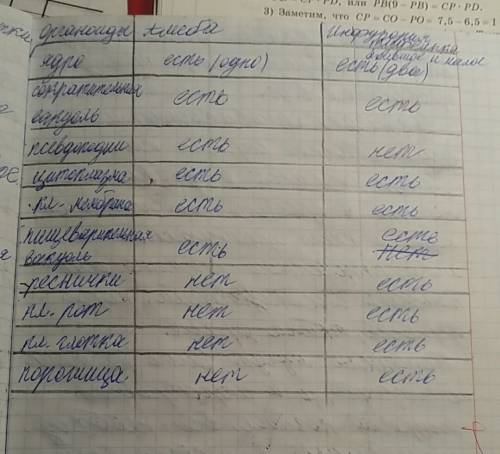 или PB(9 − PB) = CP · PD.
3) Заметим, что CP = CO − PO = 7,5 − 6,5 = 1
органоиды Амёба Инфузория туфелька
ядро есть (одно) есть (два) большое и малое
сократительная вакуоль есть есть
псевдоподии есть нет
цитоплазма есть есть
кл. мембрана есть есть
пищеварительная вакуоль есть есть нет
реснички нет есть
кл. рот нет есть
кл. глотка нет есть
порошица нет есть